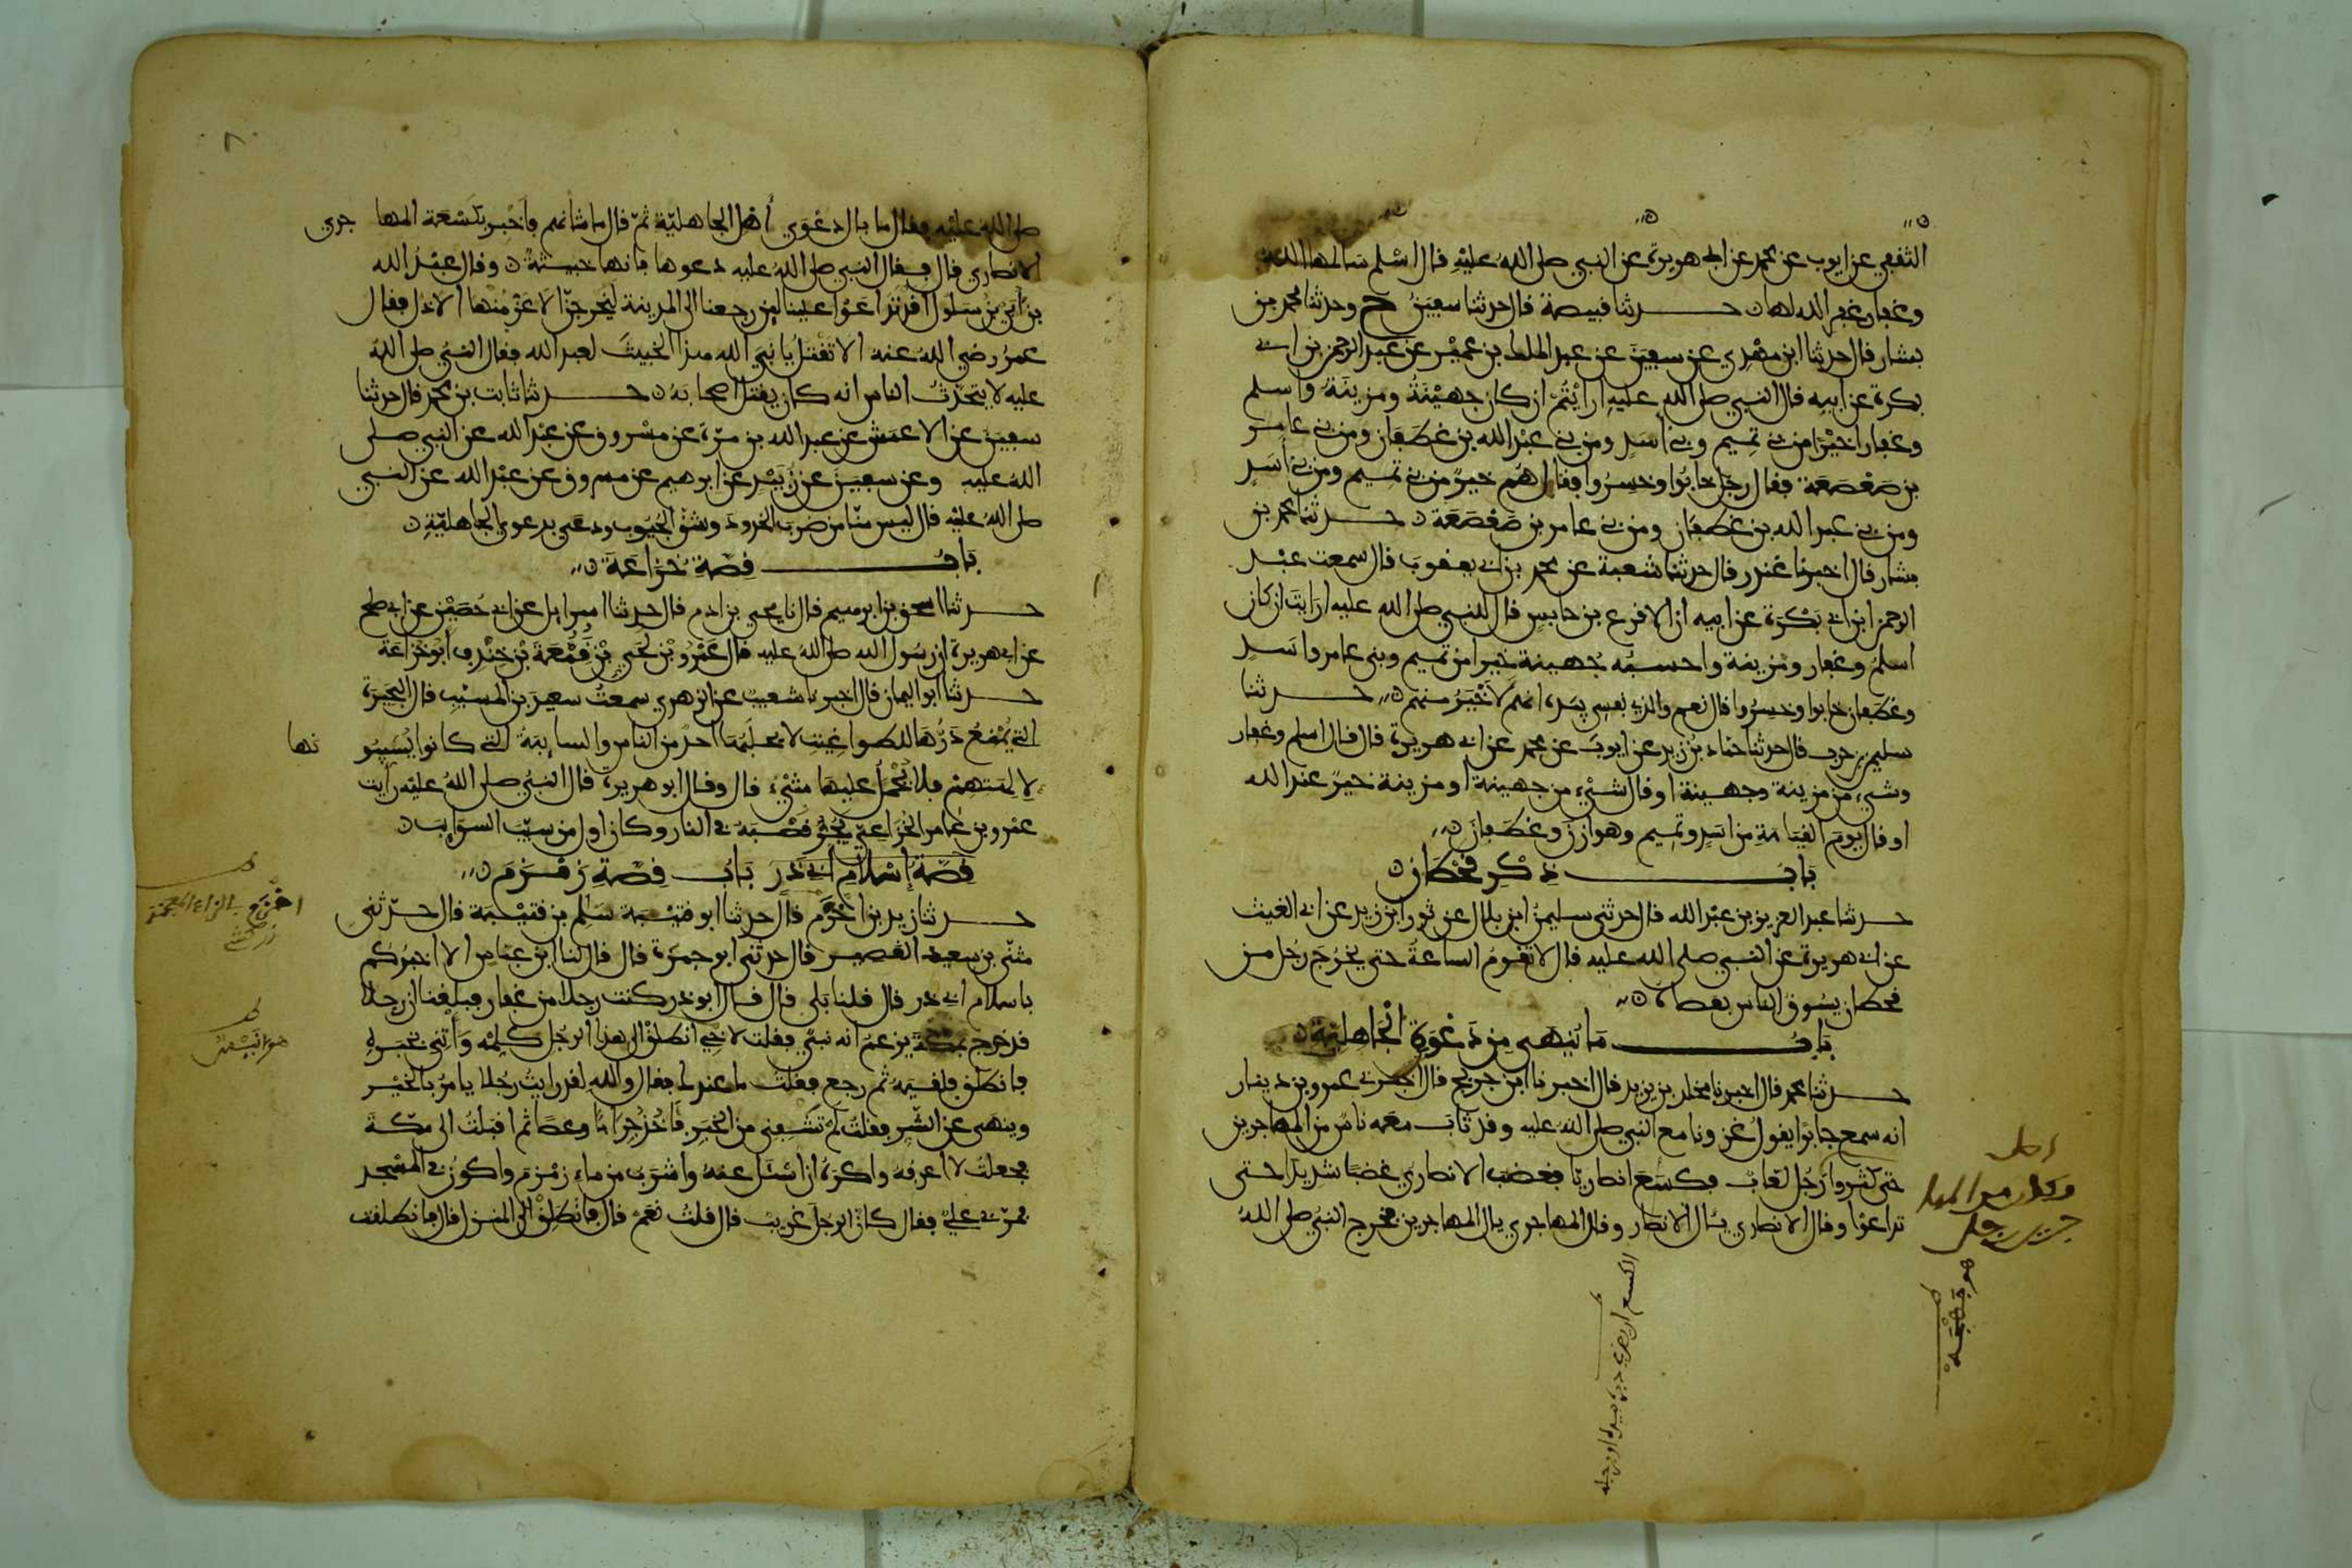 الثقفي عن ايوب عن محمد عن ابي هريرة عن النبي صلى الله عليه قال اسلم سالمها الله
وغفار غفر الله لها حدثنا قبيصة قال حدثنا سفين ح وحدثنا محمد بن
بشار قال حدثنا ابن مهدي عن سفين عن عبد الملك بن عمير عن عبد الرحمن بن ابي
بكرة عن ابيه قال النبي صلى الله عليه ارايتم ان كان جهينة ومزينة واسلم
وغفار اخيرا من بني تميم وبني اسد ومن بني عبد الله بن غطفان ومن بني عامر
بن صعصعة فقال رجل خابوا وخسروا فقال هم خير من بني تميم ومن بني اسد
ومن بني عبد الله بن غطفان ومن بني عامر بن صعصعة حدثنا محمد بن
بشار قال اخبرنا غندر قال حدثنا شعبة عن محمد بن ابي يعقوب قال سمعت عبد
الرحمن ابن ابي بكرة عن ابيه ان الاقرع بن حابس قال للنبي صلى الله عليه ارايت ان كان
اسلم وغفار ومزينة واحسبه جهينة خيرا من تميم وبني عامر واسد
وغطفان خابوا وخسروا قال نعم والذي نفسي بيده انهم لاخير منهم حدثنا
سليمن بن حرب قال حدثنا حماد بن زيد عن ايوب عن محمد عن ابي هريرة قال قال اسلم وغفار
وشيء من مزينة وجهينة او قال شيء من جهينة او مزينة خير عند الله
او قال يوم القيامة من اسد وتميم وهوازن وغطفان
باب ذكر قحطان
حدثنا عبد العزيز بن عبد الله قال حدثني سليمن ابن بلال عن ثور ابن زيد عن ابي الغيث
عن ابي هريرة عن النبي صلى الله عليه قال لا تقوم الساعة حتى يخرج رجل من
قحطان يسوق الناس بعصاه
باب ما ينهى من دعوة الجاهلية
حدثنا محمد قال اخبرنا مخلد بن يزيد قال اخبرنا ابن جريج قال اخبرني عمرو بن دينار
انه سمع جابرا يقول غزونا مع النبي صلى الله عليه وقد ثاب معه ناس من المهاجرين
حتى كثروا رجل لعاب فكسع انصاريا فغضب الانصاري غضبا شديدا حتى
تداعوا وقال الانصاري يال الانصار وقال المهاجري يال المهاجرين فخرج النبي صلى الله
صلى الله عليه فقال ما بال دعوى اهل الجاهلية ثم قال ما شانهم فاخبر بكسعة المهاجري
الانصاري قال فقال النبي صلى الله عليه دعوها فانها خبيثة وقال عبد الله
بن ابي بن سلول اقد تداعوا علينا لين رجعنا الى المدينة ليخرجن الاعز منها الاذل فقال
عمر رضي الله عنه الا تقتل يا نبي الله هذا الخبيث لعبد الله فقال النبي صلى الله
عليه لا يتحدث الناس انه كان يقتل اصحابه حدثنا ثابت بن محمد قال حدثنا
سفين عن الاعمش عن عبد الله بن مرة عن مسروق عن عبد الله عن النبي صلى
الله عليه وعن سفين عن زبيد عن ابرهيم عن مسروق عن عبد الله عن النبي
صلى الله عليه قال ليس منا من ضرب الخدود وشق الجيوب ودعى بدعوى الجاهلية
باب قصة خزاعة
حدثنا اسحق بن ابرهيم قال نا يحيى بن ادم قال حدثنا اسرايل عن ابي حصين عن ابي صلح
عن ابي هريرة ان رسول الله صلى الله عليه قال عمرو بن لحي بن قمعة بن خندف ابو خزاعة
حدثنا ابو اليمان قال اخبرنا شعيب عن الزهري سمعت سعيد بن المسيب قال البحيرة
التي يمنع درها للطواغيت لا يحلبها احد من الناس والسايبة التي كانوا يسيبونها
لالهتهم فلا يحمل عليها شيء قال وقال ابو هريرة قال النبي صلى الله عليه رايت
عمرو بن عامر الخزاعي يجر قصبه في النار وكان اول من سيب السوايب
قصة اسلام ابي ذر باب قصة زمزم
حدثنا زيد بن اخزم قال حدثنا ابو قتيبة سلم بن قتيبة قال حدثني
مثنى بن سعيد القصير قال حدثني ابو جمرة قال قال لنا ابن عباس الا اخبركم
باسلام ابي ذر قال قلنا بلى قال قال ابو ذر كنت رجلا من غفار فبلغنا ان رجلا
قد خرج بمكة يزعم انه نبي فقلت لاخي انطلق الى هذا الرجل كلمه واتني بخبره
فانطلق فلقيه ثم رجع فقلت ما عندك فقال والله لقد رايت رجلا يامر بالخير
وينهى عن الشر فقلت لم تشفني من الخبر فاخذ جرابا وعصا ثم اقبلت الى مكة
فجعلت لا اعرفه واكره ان اسئل عنه واشرب من ماء زمزم واكون في المسجد
فمر بي علي فقال كان الرجل غريب قال قلت نعم قال فانطلق الى المنزل قال فانطلقت